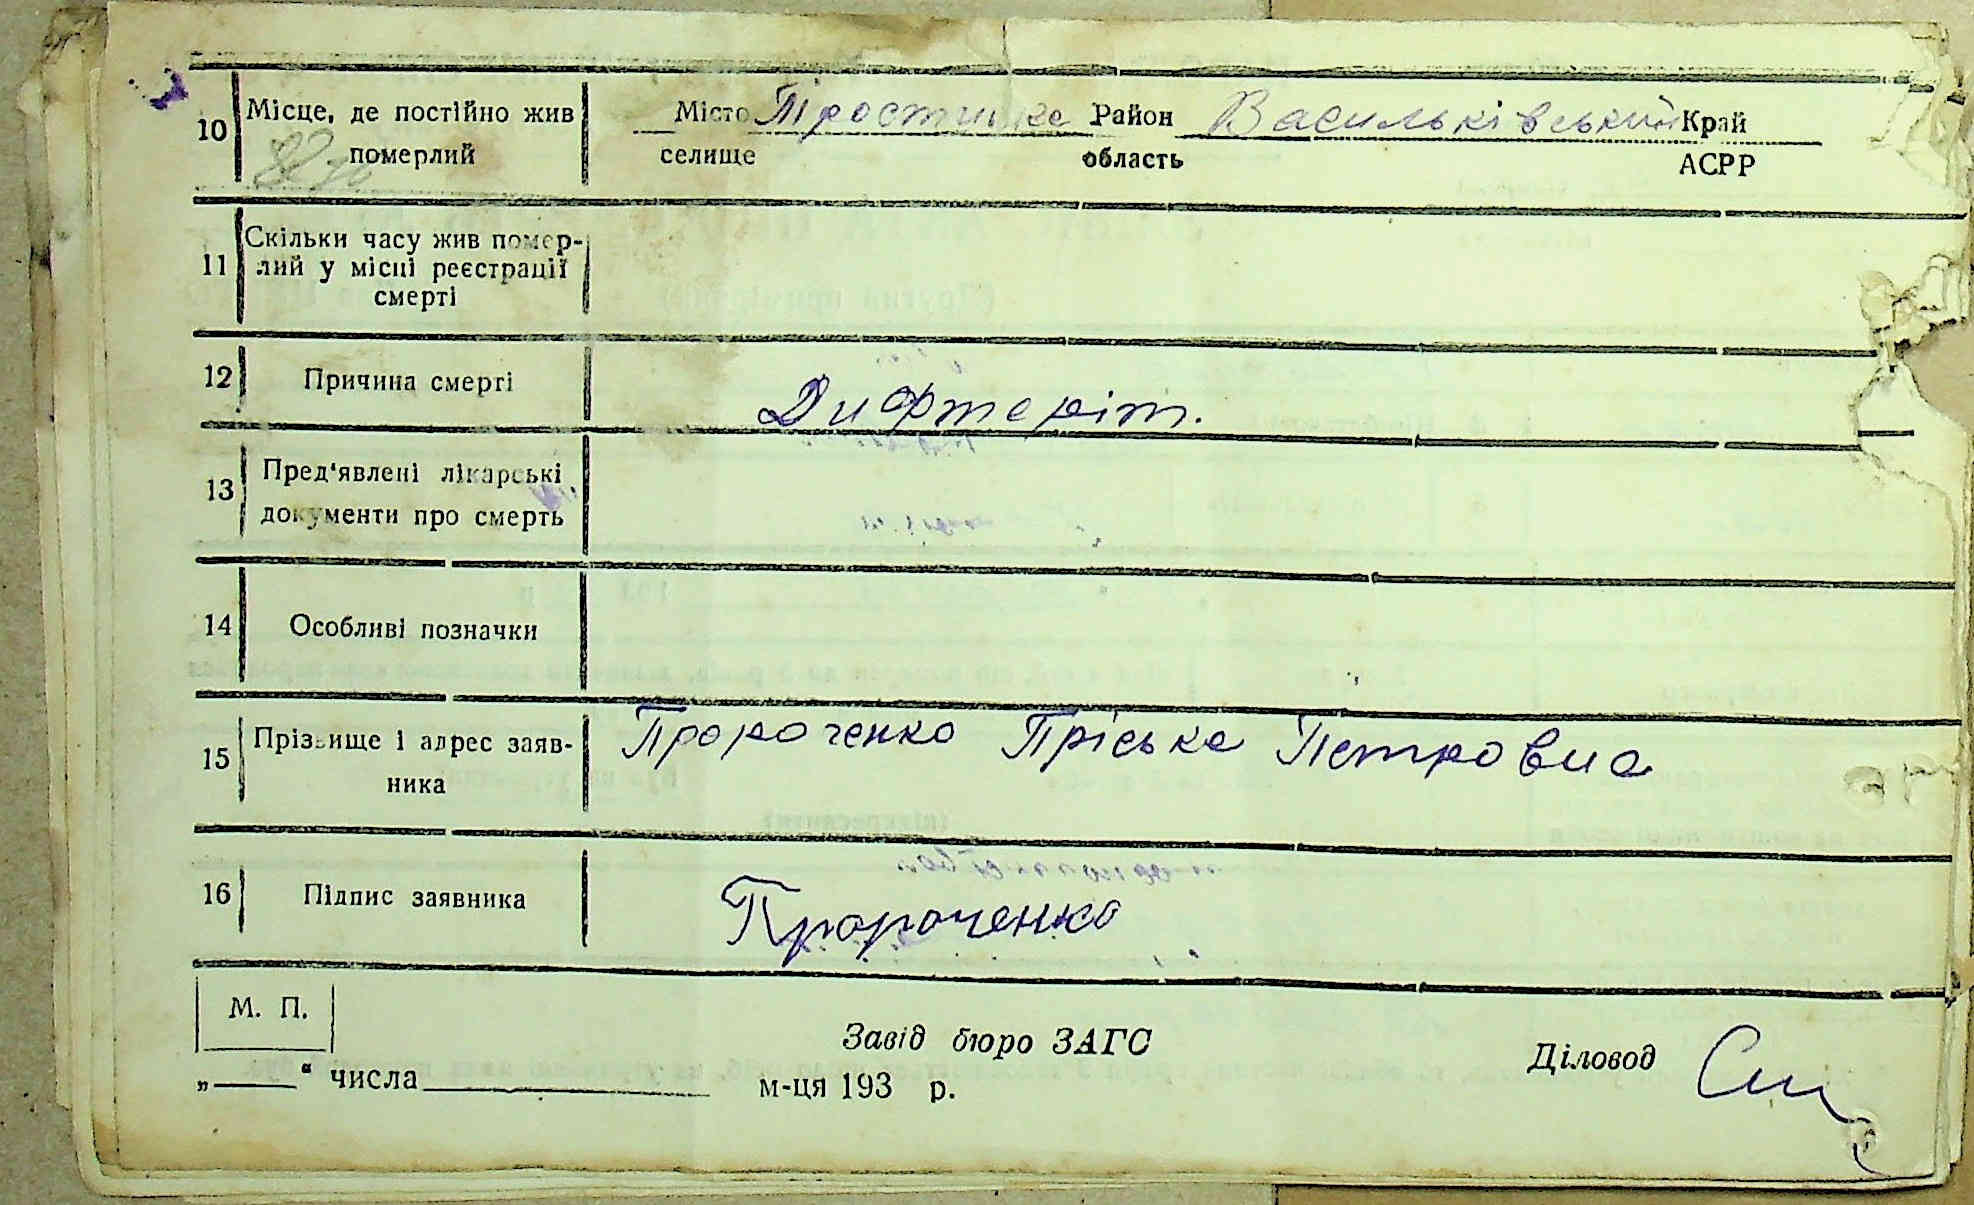 10 Місце, де постійно жив Місто Район Васильківський Край
померлий селище область АСРР
11 Скільки часу жив помер-
лий у місці реєстрації
смерті
12 Причина смерті Дифтеріт.
13 Пред'явлені лікарські
документи про смерть
14 Особливі позначки
15 Прізвище і адрес заяв- Пророченко Пріська Петровна
ника
16 Підпис заявника Пророченко
М. П.
Завід бюро ЗАГС Діловод
„ “ числа м-ця 193 р.